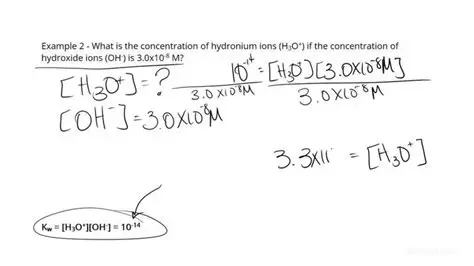 Example 2 - What is the concentration of hydronium ions (H₃O⁺) if the concentration of
hydroxide ions (OH⁻) is 3.0x10⁻⁸ M?
[H₃O⁺] = ?
[OH⁻] = 3.0X10⁻⁸M
10⁻¹⁴ = [H₃O⁺][3.0X10⁻⁸M]
3.0X10⁻⁸M 3.0X10⁻⁸M
3.3x1 = [H₃O⁺]
Kw = [H₃O⁺][OH⁻] = 10⁻¹⁴